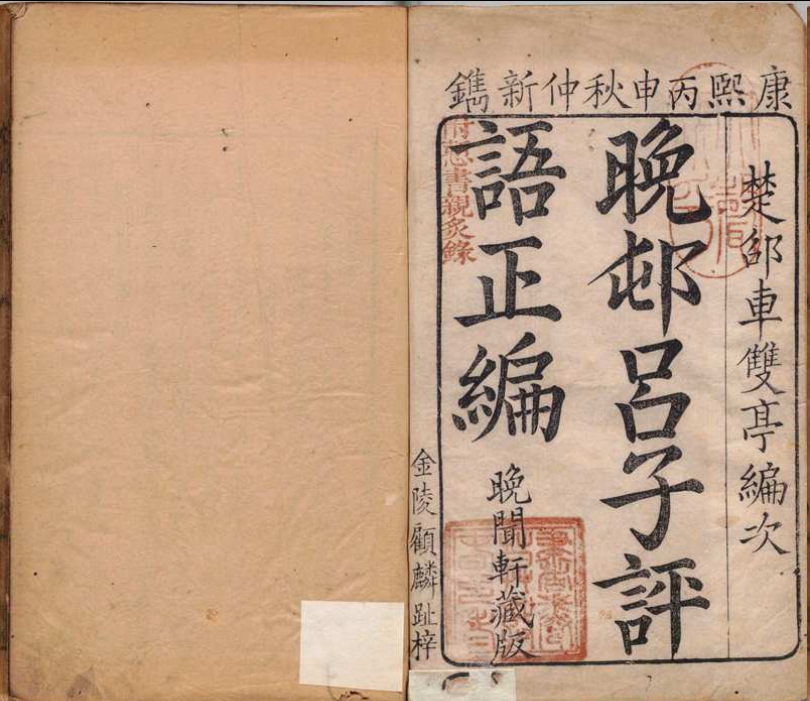 康熙丙申秋仲新鐫
楚邵車雙亭編次
晚邨呂子評
語正編
附怨書親炙錄
晚聞軒藏版
金陵顧麟趾梓